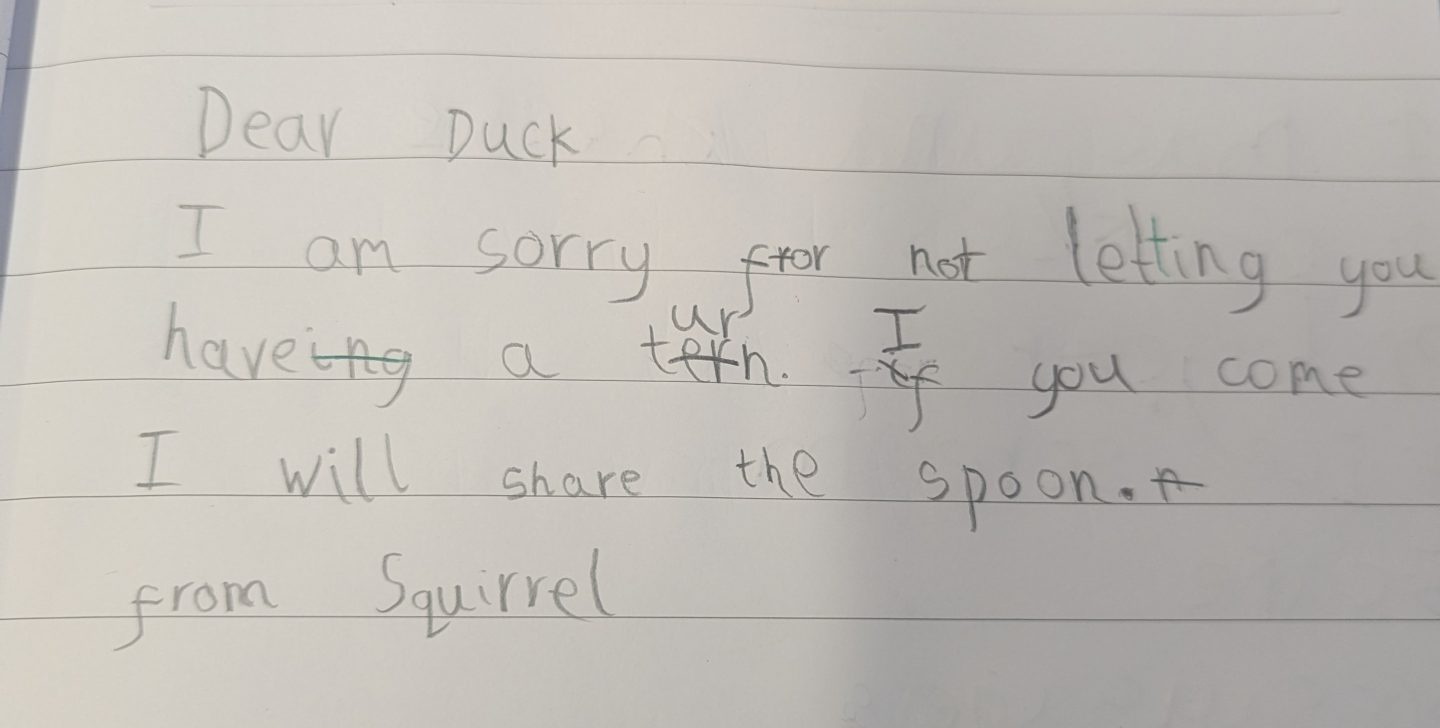 Dear Duck
I am sorry for not letting you
have a turn. If you come
I will share the spoon.
from Squirrel